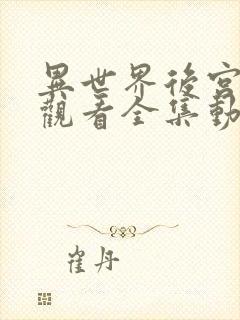 異世界後宮
觀看全集動
崔丹